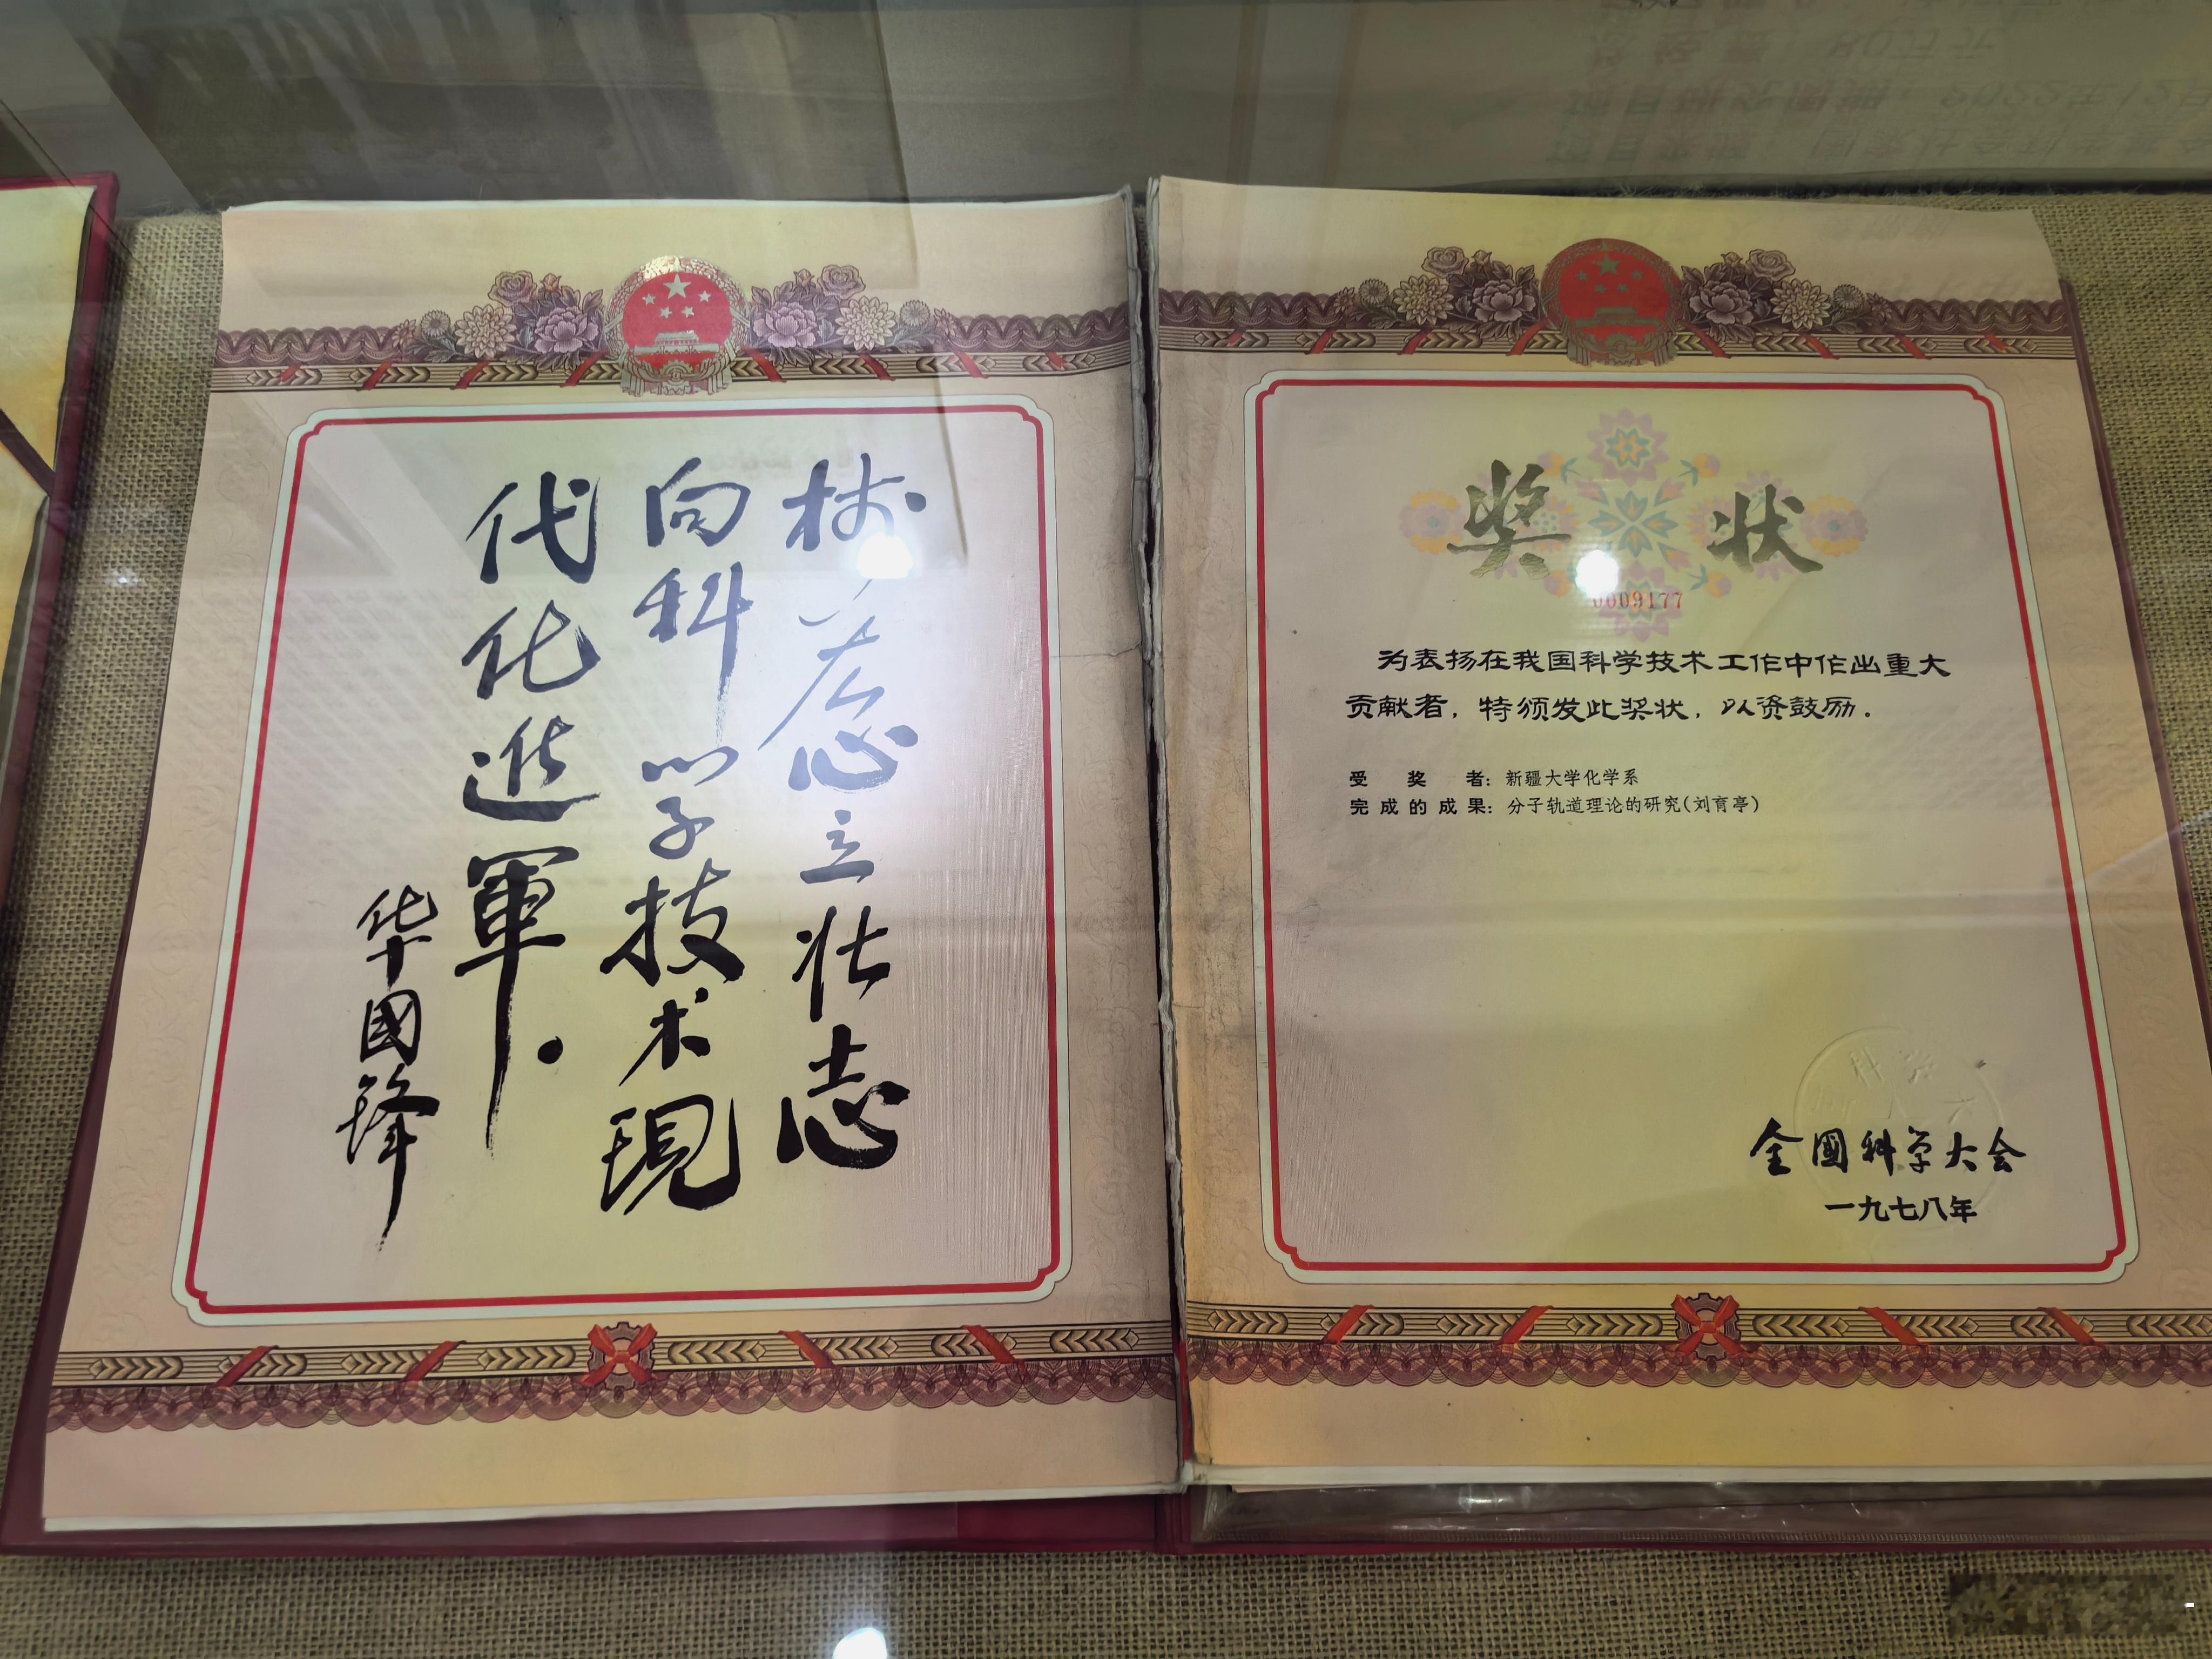 树雄心立壮志
向科学技术现
代化進軍.
华國锋
奖 状
0009177
为表扬在我国科学技术工作中作出重大
贡献者，特颁发此奖状，以资鼓励。
受奖者：新疆大学化学系
完成的成果：分子轨道理论的研究(刘育亭)
全國科学大会
一九七八年